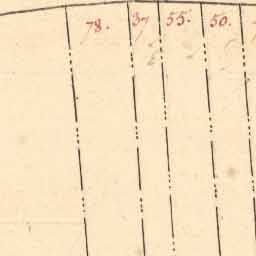 78. 37 55. 50.